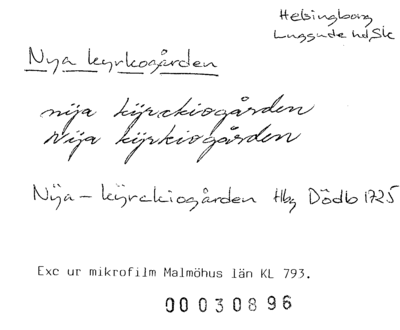 Helsingborg
Luggude hd, Sk
Nya kyrkogården
nÿa kÿrckiogården
Nÿa kÿrkiogården
Nÿa - kÿrckiogården Hbg Dödb 1725
Exc ur mikrofilm Malmöhus län KL 793.
00030896